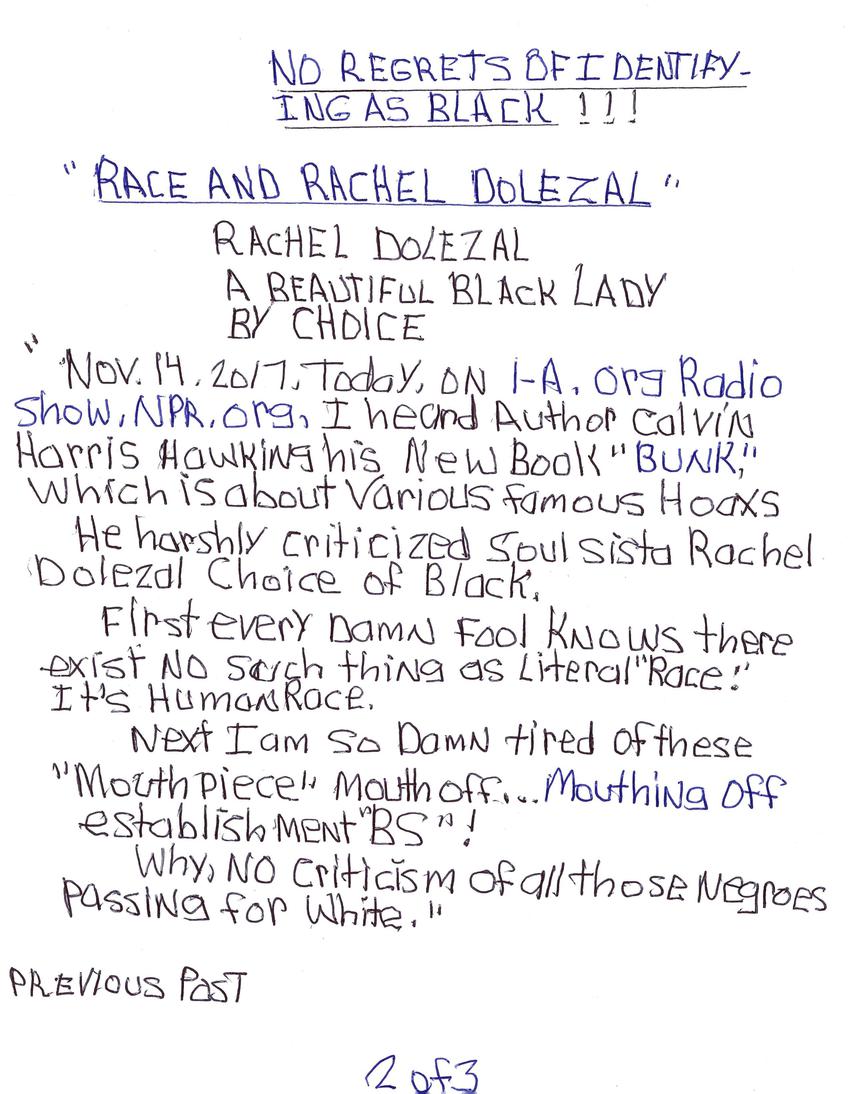 NO REGRETS OF IDENTIFY-
ING AS BLACK !!!
"RACE AND RACHEL DOLEZAL"
RACHEL DOLEZAL
A BEAUTIFUL BLACK LADY
BY CHOICE
"Nov. 14, 2017, Today, ON 1-A.org Radio
Show, NPR.org, I heard Author Calvin
Harris Hawking his New Book "BUNK,"
Which is about Various famous Hoaxs
He harshly criticized Soul Sista Rachel
Dolezal Choice of Black.
First every DAMN Fool KNOWS there
exist NO such thing as Literal "Race!"
It's Human Race.
Next I am so DAMN tired of these
"Mouth piece" Mouth off... Mouthing Off
establishment "BS"!
Why, NO Criticism of all those Negroes
Passing for White."
PREVIOUS PosT
2 of 3